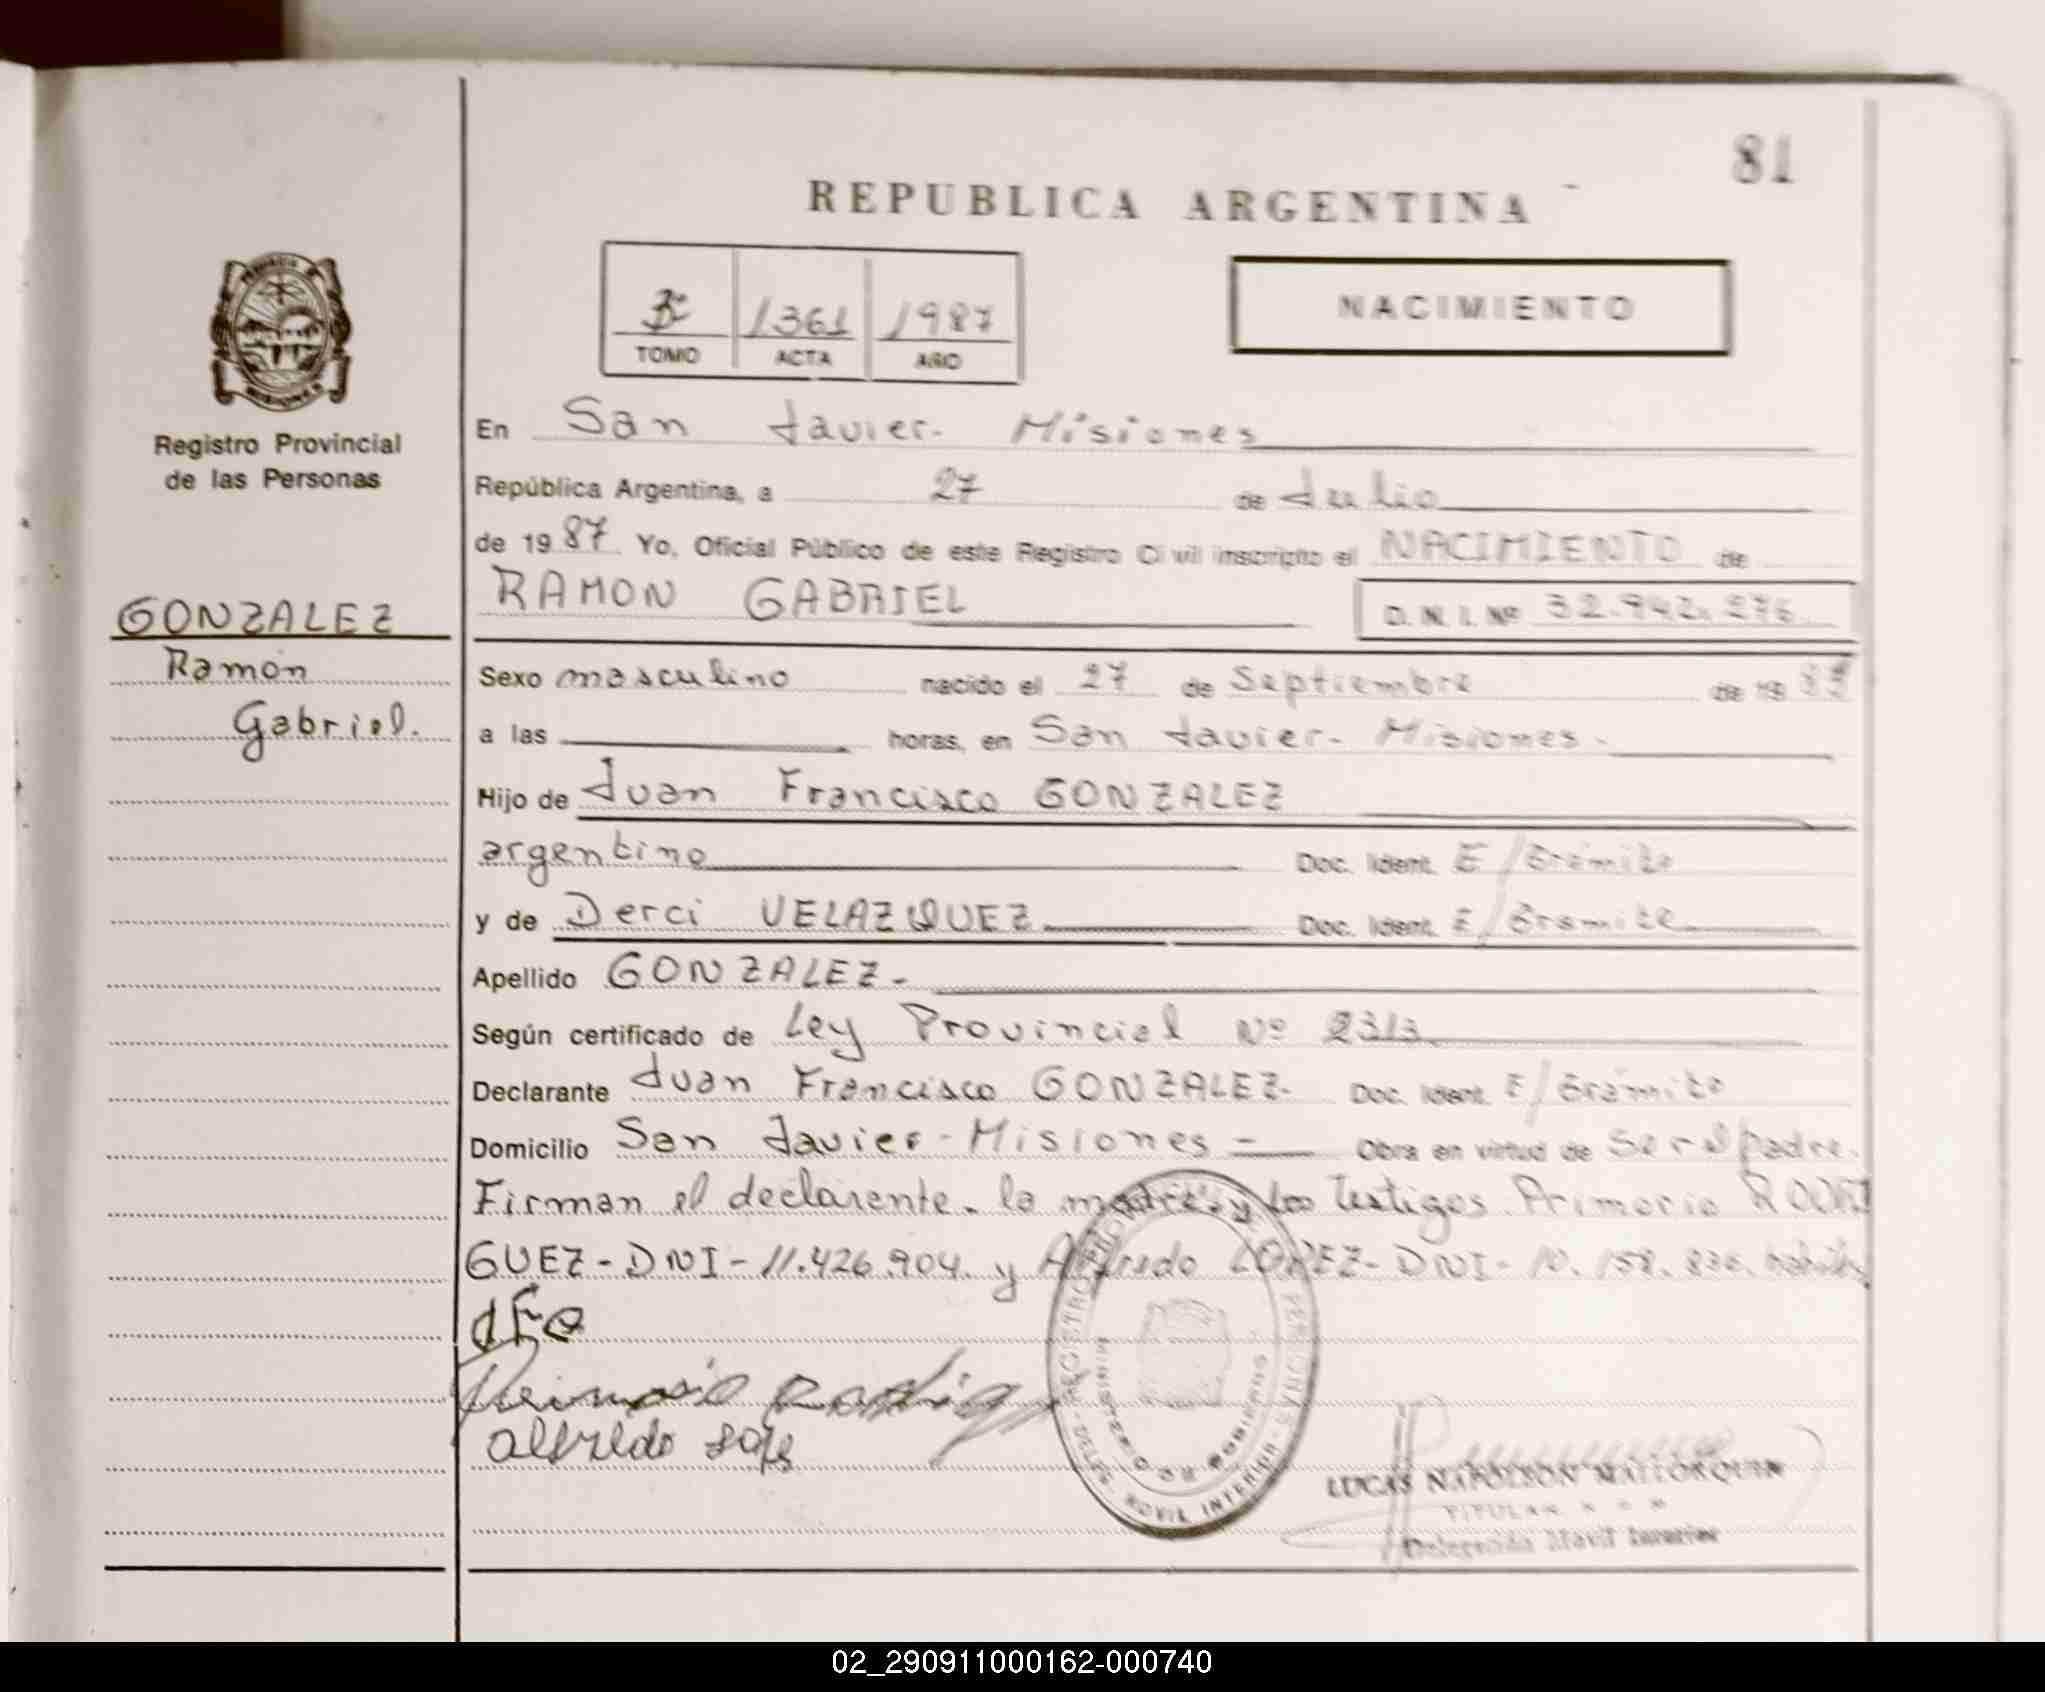 81
REPUBLICA ARGENTINA
3º 1361 1987
TOMO ACTA AÑO
NACIMIENTO
Registro Provincial
de las Personas
GONZALEZ
Ramón
Gabriel.
En San Javier- Misiones
República Argentina, a 27 de Julio
de 1987 Yo, Oficial Público de este Registro Civil inscripto el NACIMIENTO de
RAMON GABRIEL D. N. I. Nº 32.942.276
Sexo masculino nacido el 27 de Septiembre de 19
a las horas, en San Javier- Misiones-
Hijo de Juan Francisco GONZALEZ
argentino Doc. Ident. E/trámite
y de Derci VELAZQUEZ Doc. Ident. E/tramite
Apellido GONZALEZ-
Según certificado de Ley Provincial Nº 2313
Declarante Juan Francisco GONZALEZ- Doc. Ident. E/trámite
Domicilio San Javier-Misiones = Obra en virtud de ser el padre.
Firman el declarente. la madre y los testigos Primario RODRI
GUEZ-DNI-11.426.904. y Alfredo LOPEZ-DNI-10.158.836. hábiles
JFG
alfredo
REGISTRO PROV PERSONAS
MINISTERIO DE GOBIERNO
DELEG. MOVIL INTERIOR
LUCAS NAPOLEON MALLORQUIN
TITULAR
Delegación Movil Interior
02_290911000162-000740